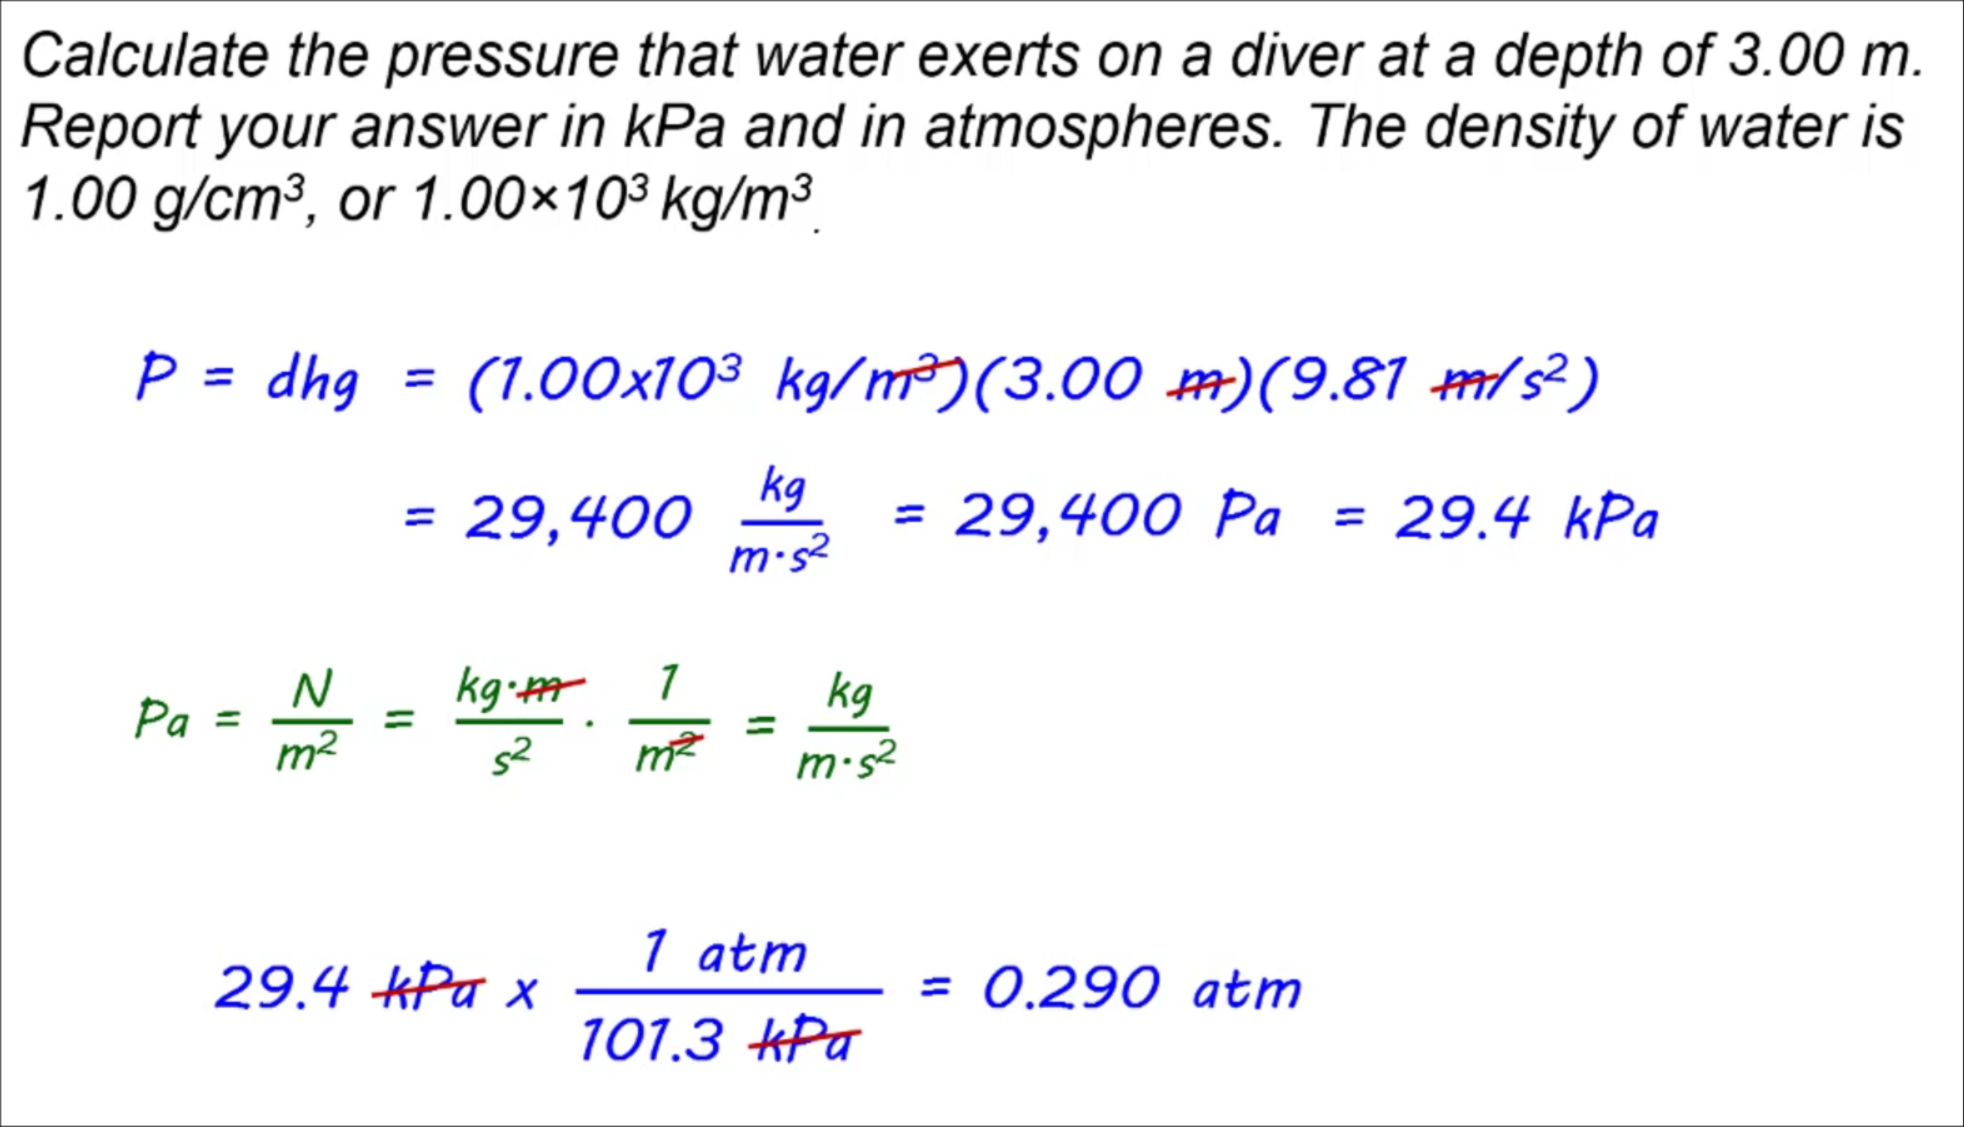 Calculate the pressure that water exerts on a diver at a depth of 3.00 m.
Report your answer in kPa and in atmospheres. The density of water is
1.00 g/cm³, or 1.00×10³ kg/m³.
P = dhg = (1.00x10³ kg/m³)(3.00 m)(9.81 m/s²)
= 29,400 kg/m·s² = 29,400 Pa = 29.4 kPa
Pa = N/m² = kg·m/s² · 1/m² = kg/m·s²
29.4 kPa x 1 atm/101.3 kPa = 0.290 atm